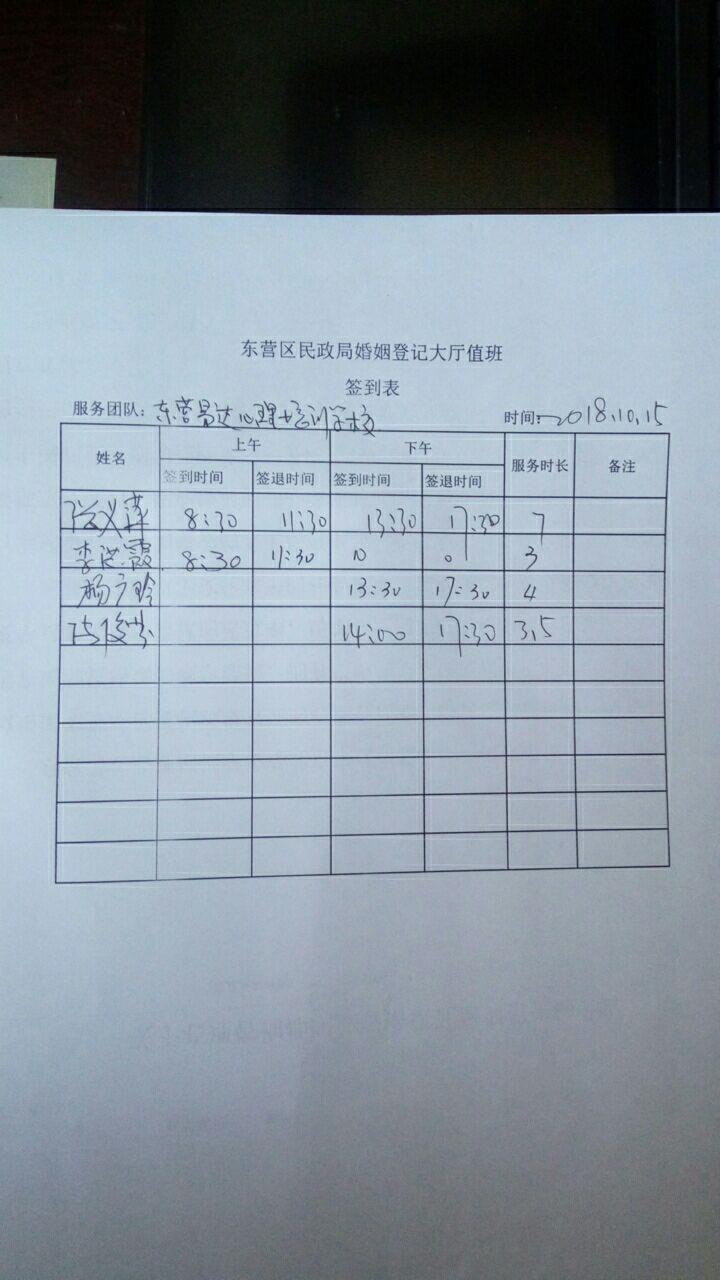 东营区民政局婚姻登记大厅值班
签到表
服务团队：东营易达心理培训学校 时间：2018.10.15
姓名 上午 下午 服务时长 备注
签到时间 签退时间 签到时间 签退时间
张义萍 8:30 11:30 13:30 17:30 7
李洪霞 8:30 11:30 0 0 3
杨广玲 13:30 17:30 4
14:00 17:30 3.5